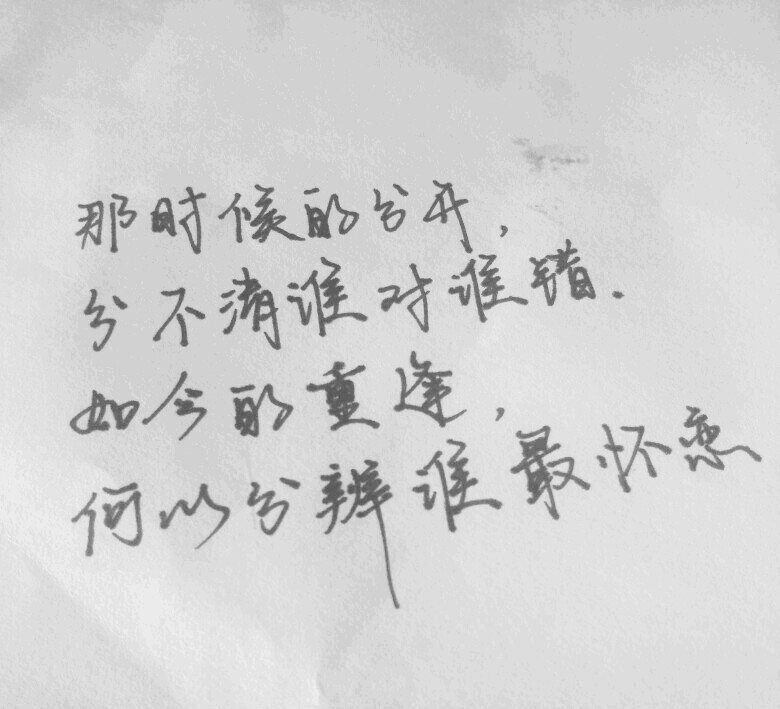 那时候的分开,
分不清谁对谁错.
如今的重逢,
何以分辨谁最怀恋